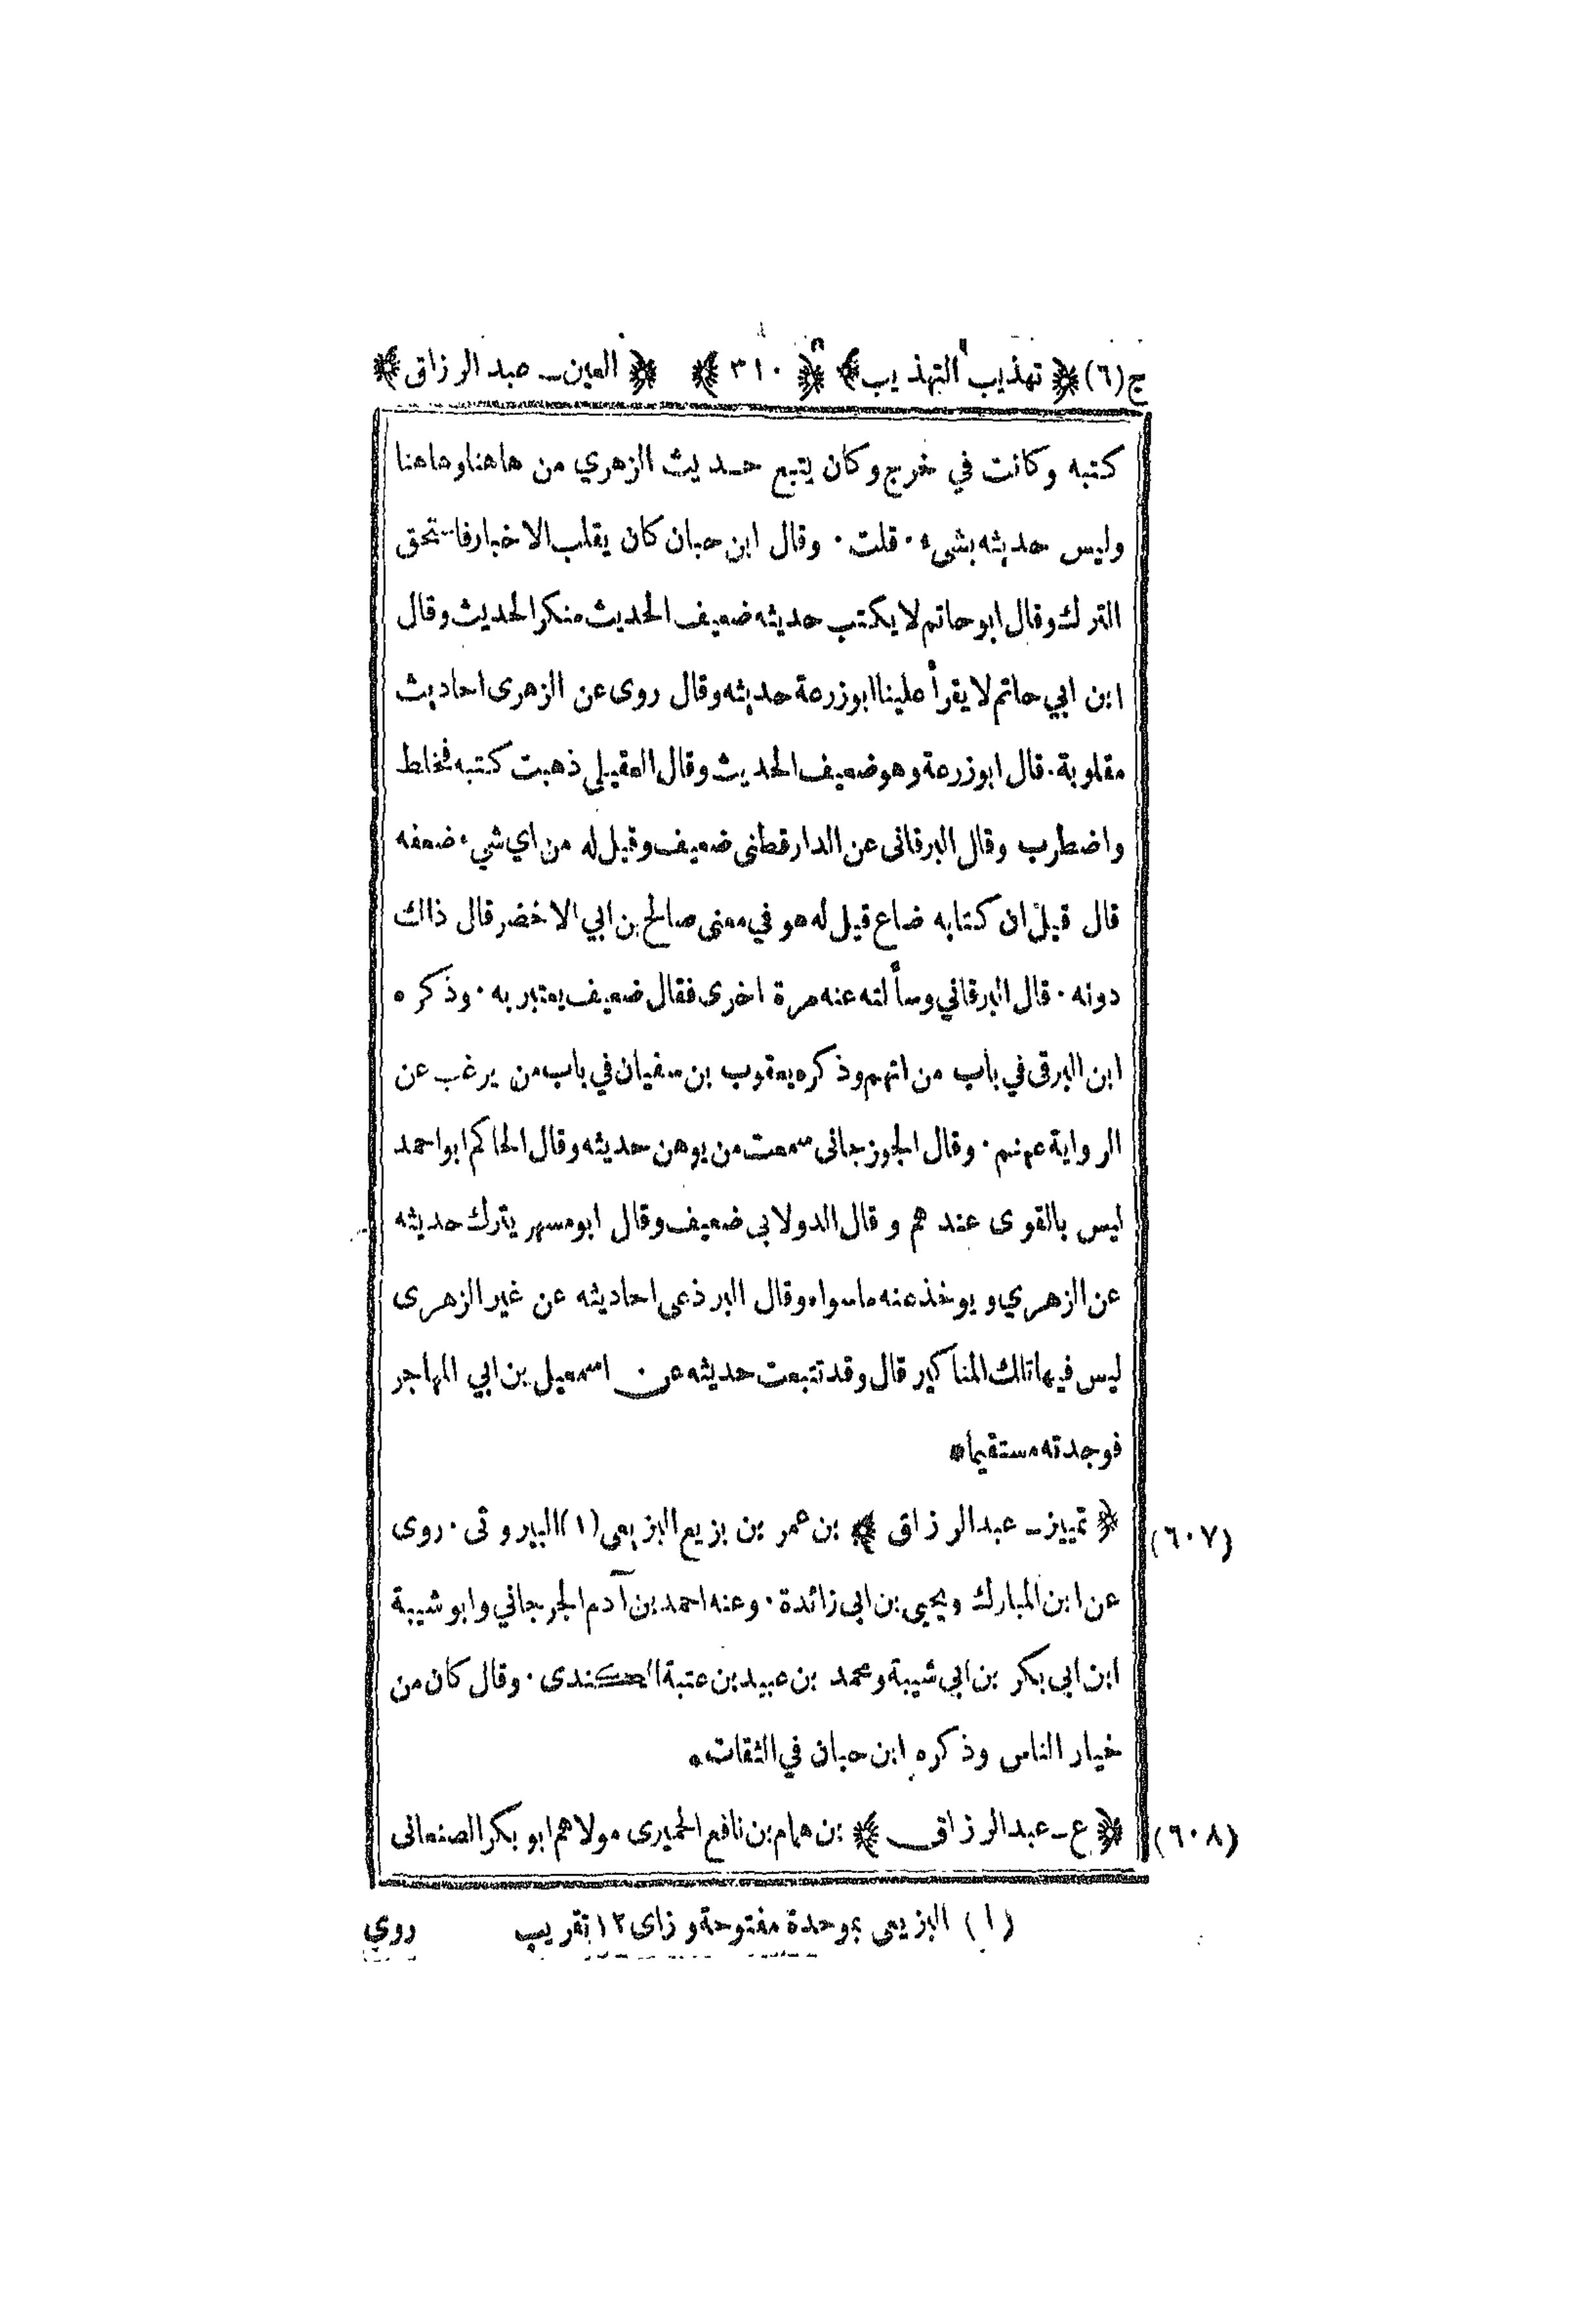 ج(٦) ﴿ تهذيب التهذيب ﴾ ﴿ ٣١٠ ﴾ ﴿ العين ـ عبد الرزاق ﴾
كتبه وكانت في خرج وكان يتبع حديث الزهري من هاهنا وهاهنا
وليس حديثه بشيء · قلت · وقال ابن حبان كان يقلب الاخبار فاستحق
الترك وقال ابو حاتم لا يكتب حديثه ضعيف الحديث منكر الحديث وقال
ابن ابي حاتم لا يقرأ علينا ابوزرعة حديثه وقال روى عن الزهرى احاديث
مقلوبة · قال ابوزرعة وهو ضعيف الحديث وقال العقيلي ذهبت كتبه فخلط
واضطرب وقال البرقانى عن الدارقطنى ضعيف وقيل له من اي شيء ضعفه
قال قيل ان كتابه ضاع قيل له هو في معنى صالح بن ابي الاخضر قال ذاك
دونه · قال البرقاني وسألته عنه مرة اخرى فقال ضعيف يعتبر به · وذكره
ابن البرقى في باب من اتهم وذكره يعقوب بن سفيان في باب من يرغب عن
الرواية عنهم · وقال الجوزجانى سمعت من يوهن حديثه وقال الحاكم ابو احمد
ليس بالقوى عندهم و قال الدولابى ضعيف وقال ابومسهر يترك حديثه
عن الزهري و يوخذ عنه ماسواه وقال البرذعى احاديثه عن غير الزهرى
ليس فيها تلك المناكير قال وقد تتبعت حديثه عن اسمعيل بن ابي المهاجر
فوجدته مستقيما *
(٦٠٧) ﴿ تمييز ـ عبدالرزاق ﴾ بن عمر بن بزيع البزيعى (١) البيروتى · روى
عن ابن المبارك ويحيى بن ابى زائدة · وعنه احمد بن آدم الجرجاني وابو شيبة
ابن ابى بكر بن ابي شيبة ومحمد بن عبيد بن عتبة الكندى · وقال كان من
خيار الناس وذكره ابن حبان في الثقات *
(٦٠٨) ﴿ ع ـ عبدالرزاق ﴾ بن همام بن نافع الحميرى مولاهم ابو بكر الصنعانى
(١) البزيعى بموحدة مفتوحة و زاى ١٢ تقريب
روي